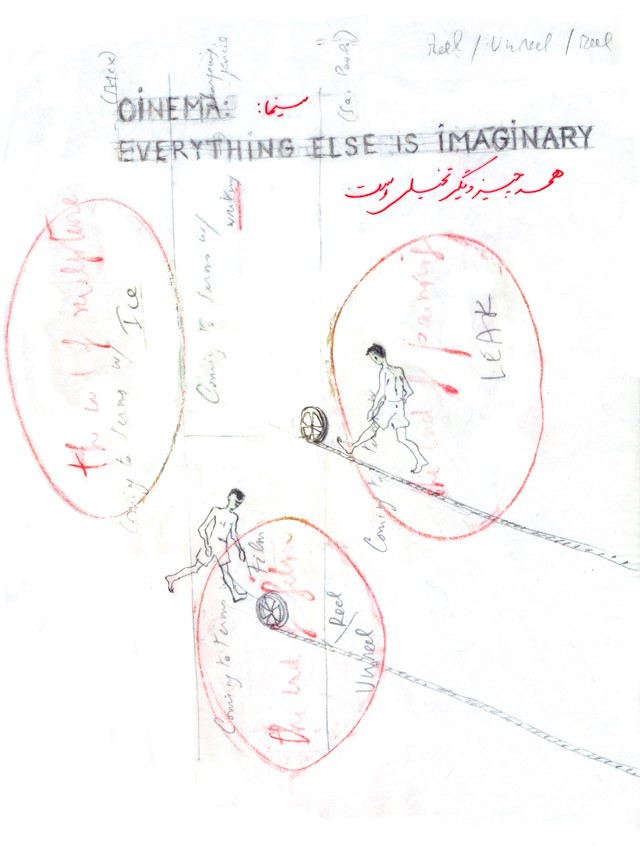 Reel / Unreel / Reel
(Alex)
(Sao Paulo)
CINEMA:
سینما:
EVERYTHING ELSE IS IMAGINARY
همه چیز دیگر تخیلی است
the end of sculpture
Coming to terms w/
Ice
Coming to terms w/
writing
the end of painting
Coming to
LEAK
Coming to terms
Film
the end of film
Reel
Unreel